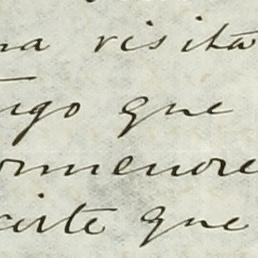 na visita
ngo que
ormenore
cirte que